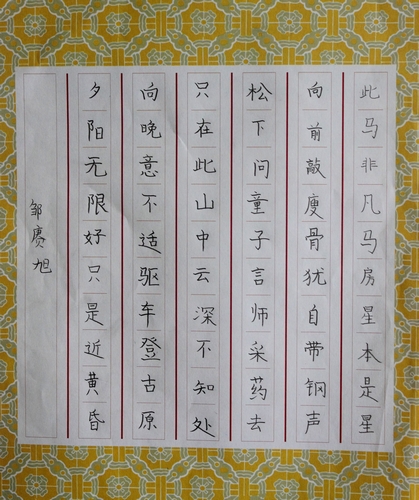 此马非凡马房星本是星
向前敲廋骨犹自带钢声
松下问童子言师采药去
只在此山中云深不知处
向晚意不适驱车登古原
夕阳无限好只是近黄昏
邹赓旭